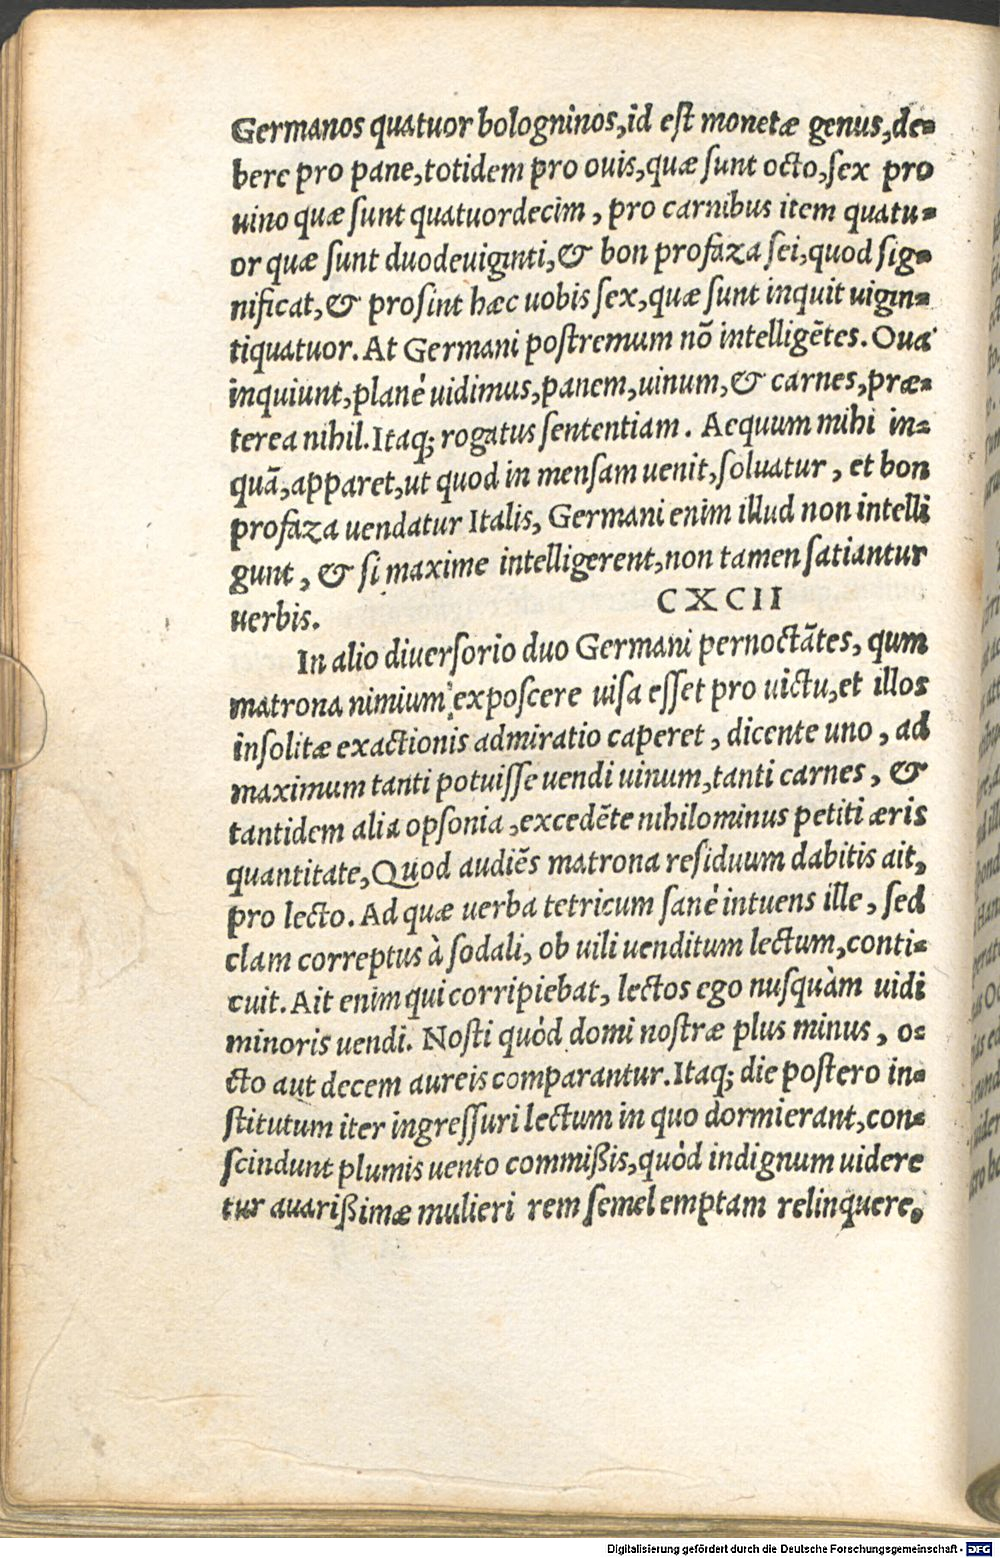 Germanos quatuor bologninos,id est monetæ genus,de-
bere pro pane,totidem pro ouis,quæ ſunt octo,ſex pro
uino quæ ſunt quatuordecim, pro carnibus item quatu-
or quæ ſunt duodeuiginti,& bon profaza ſei,quod ſig-
nificat,& proſint hæc uobis ſex,quæ ſunt inquit uigin-
tiquatuor. At Germani poſtremum nō intelligētes. Oua
inquiunt,planè uidimus,panem,uinum,& carnes,præ-
terea nihil. Itaq; rogatus ſententiam. Aequum mihi in-
quā,apparet,ut quod in menſam uenit,ſoluatur, et bon
profaza uendatur Italis, Germani enim illud non intelli
gunt, & ſi maxime intelligerent,non tamen ſatiantur
uerbis.
CXCII
In alio diuerſorio duo Germani pernoctātes, qum
matrona nimium expoſcere uiſa eſſet pro uictu,et illos
inſolitæ exactionis admiratio caperet, dicente uno, ad
maximum tanti potuiſſe uendi uinum,tanti carnes, &
tantidem alia opſonia,excedēte nihilominus petiti æris
quantitate,Quod audiēs matrona reſiduum dabitis ait,
pro lecto. Ad quæ uerba tetricum ſanè intuens ille, ſed
clam correptus à ſodali, ob uili uenditum lectum,conti-
cuit. Ait enim qui corripiebat, lectos ego nuſquàm uidi
minoris uendi. Noſti quòd domi noſtræ plus minus, o-
cto aut decem aureis comparantur. Itaq; die poſtero in-
ſtitutum iter ingreſſuri lectum in quo dormierant,con-
ſcindunt plumis uento commißis,quòd indignum uidere
tur auarißimæ mulieri rem ſemel emptam relinquere.
Digitalisierung gefördert durch die Deutsche Forschungsgemeinschaft - DFG